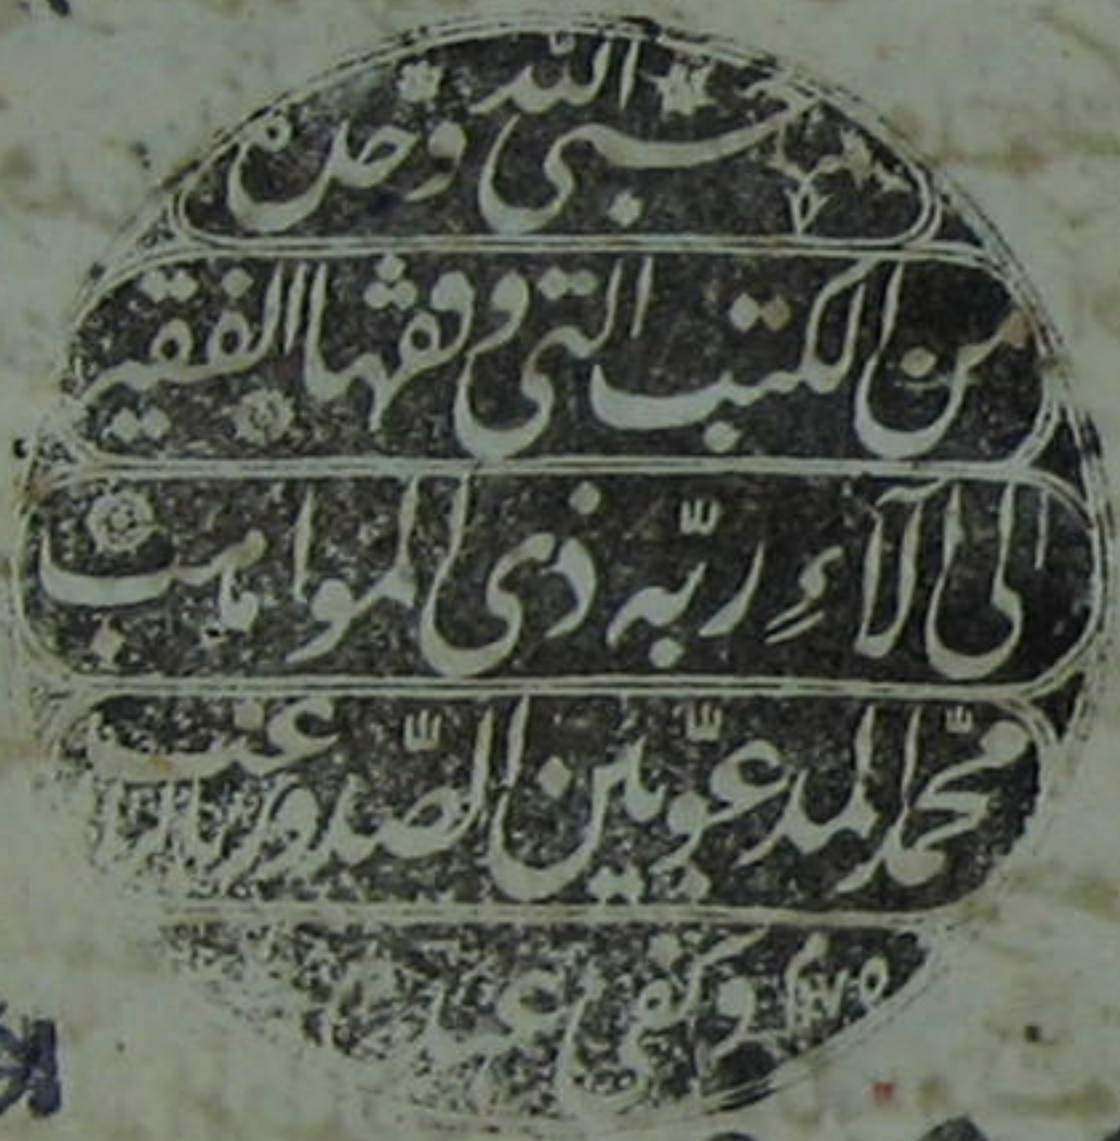 حسبى الله وحده
من الكتب التى وقفها الفقير
الى آلاءِ ربّه ذى المواهب
محّمد المدعوّ بين الصّدور بالراغب
وكفى عبده